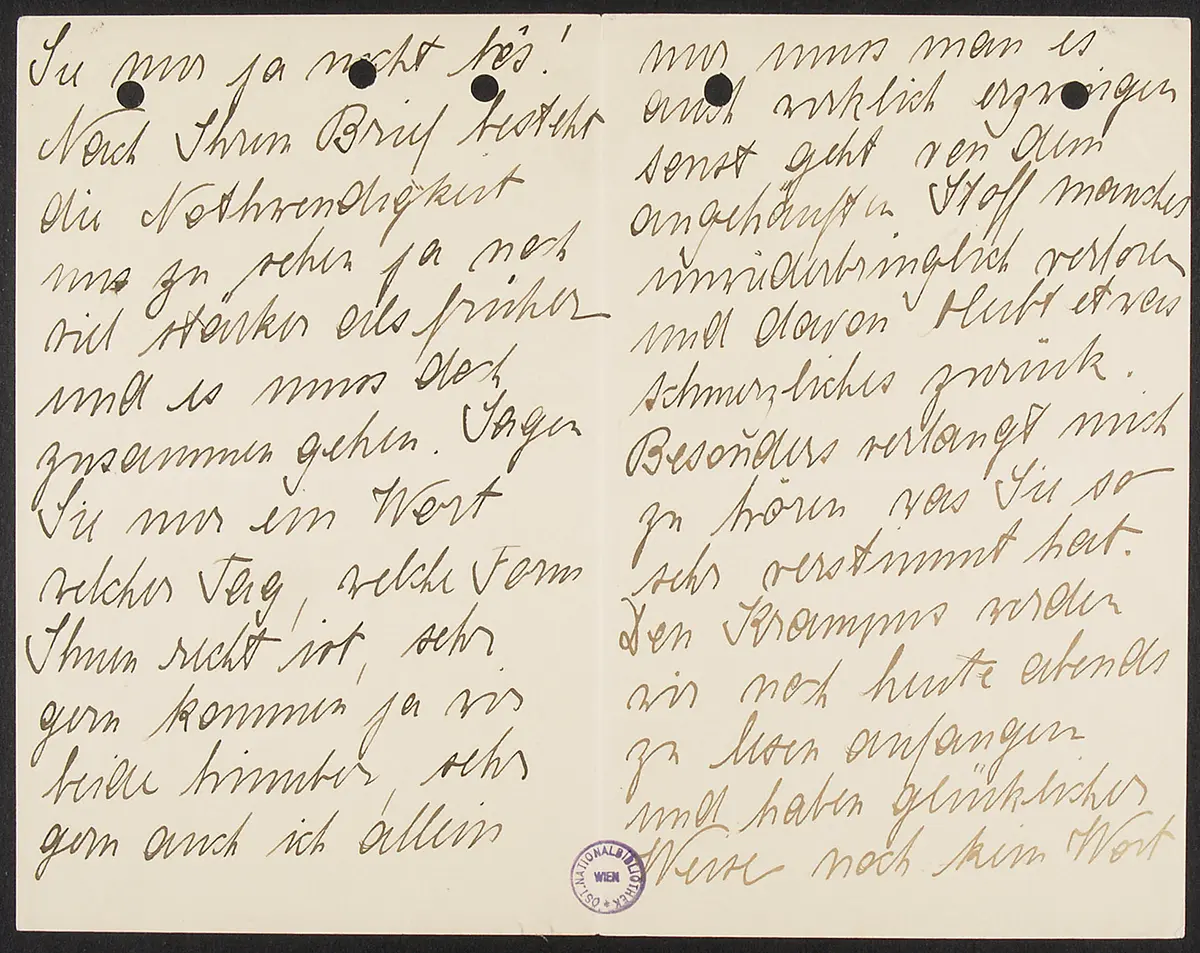 Sie mir ja nicht bös!
Nach Ihrem Brief besteht
die Nothwendigkeit
uns zu sehen ja noch
viel stärker als früher
und es muss doch
zusammen gehen. Sagen
Sie mir ein Wort
welcher Tag, welche Form
Ihnen recht ist, sehr
gern kommen ja wir
beide hinüber, sehr
gern auch ich allein
nur muss man es
auch wirklich erzwingen
sonst geht von dem
angehäuften Stoff manches
unwiederbringlich verloren
und davon bleibt etwas
schmerzliches zurück.
Besonders verlangt mich
zu hören was Sie so
sehr verstimmt hat.
Den Krampus werden
wir noch heute abends
zu lesen anfangen
und haben glücklicher
Weise noch kein Wort
ÖST. NATIONALBIBLIOTHEK
WIEN